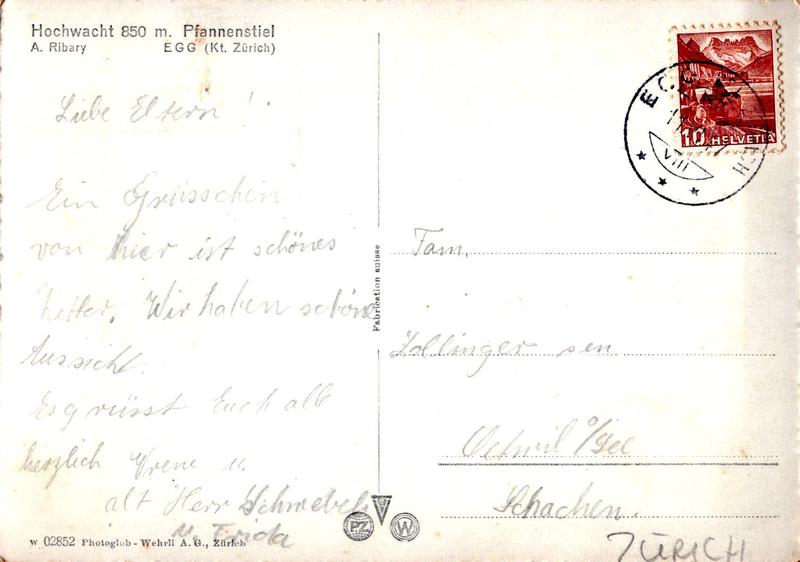 Hochwacht 850 m. Pfannenstiel
A. Ribary EGG (Kt. Zürich)
Liebe Eltern!
Ein Grüsschen
von hier ist schönes
Wetter. Wir haben schöne
Aussicht.
Es grüsst Euch alle
herzlich Vreni u.
alt Herr Schwebel
u. Frida
w 02852 Photoglob-Wehrli A. G., Zürich
Fabrication suisse
PZ
W
EGG
VIII
10 HELVETIA
Fam.
Zollinger sen
Oetwil o/See
Schachen.
ZÜRICH